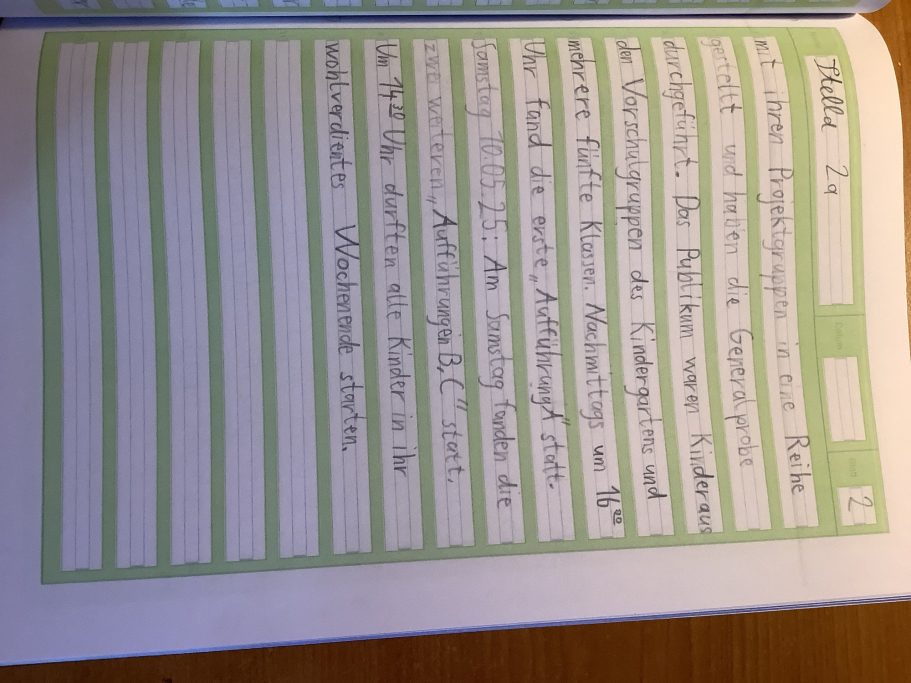 Stella 2a
2
mit ihren Projektgruppen in eine Reihe
gestellt und haben die Generalprobe
durchgeführt. Das Publikum waren Kinder aus
den Vorschulgruppen des Kindergartens und
mehrere fünfte Klassen. Nachmittags um 16⁰⁰
Uhr fand die erste „Aufführung A" statt.
Samstag 10.05.25: Am Samstag fanden die
zwei weiteren „Aufführungen B, C" statt.
Um 14³⁰ Uhr durften alle Kinder in ihr
wohlverdientes Wochenende starten.